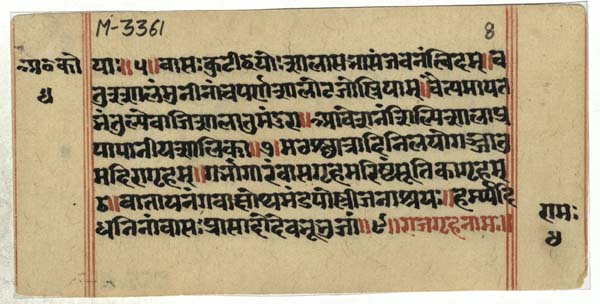 M-3361
8
याः॥५॥वासःकुटीद्वयोःशालासभासंजवनंत्विदम्॥च
तुःशालंमुनीनांचपर्णशालोटजोस्त्रियाम्॥चैत्यमायत
नंतुल्येवाजिशालातुमंदुरा॥आवेशनंशिल्पिशालाप्र
पापानीयशालिका॥७॥मठश्छात्रादिनिलयोगञ्जातु
मदिरागृहम्॥गर्भागारंवासगृहमरिष्टंसूतिकागृहम्॥
८॥वातायनंगवाक्षोथमंडपोस्त्रीजनाश्रयः॥हर्म्यादि
धनिनांवासःप्रासादोदेवभूभुजां॥९॥राजगृहनामः॥
रामः
४